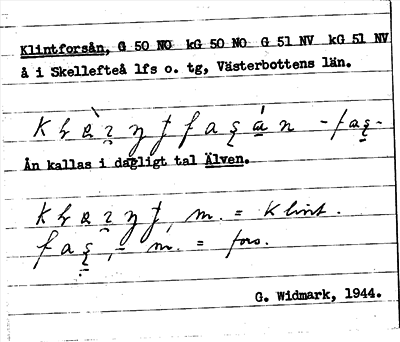 Klintforsån, G 50 NO kG 50 NO G 51 NV kG 51 NV
å i Skellefteå lfs o. tg, Västerbottens län.
Ån kallas i dagligt tal Älven.
m. = Klint.
m. = fors.
G. Widmark, 1944.